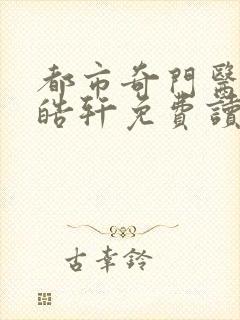 都市奇門醫
皓軒免費讀
古幸鈴